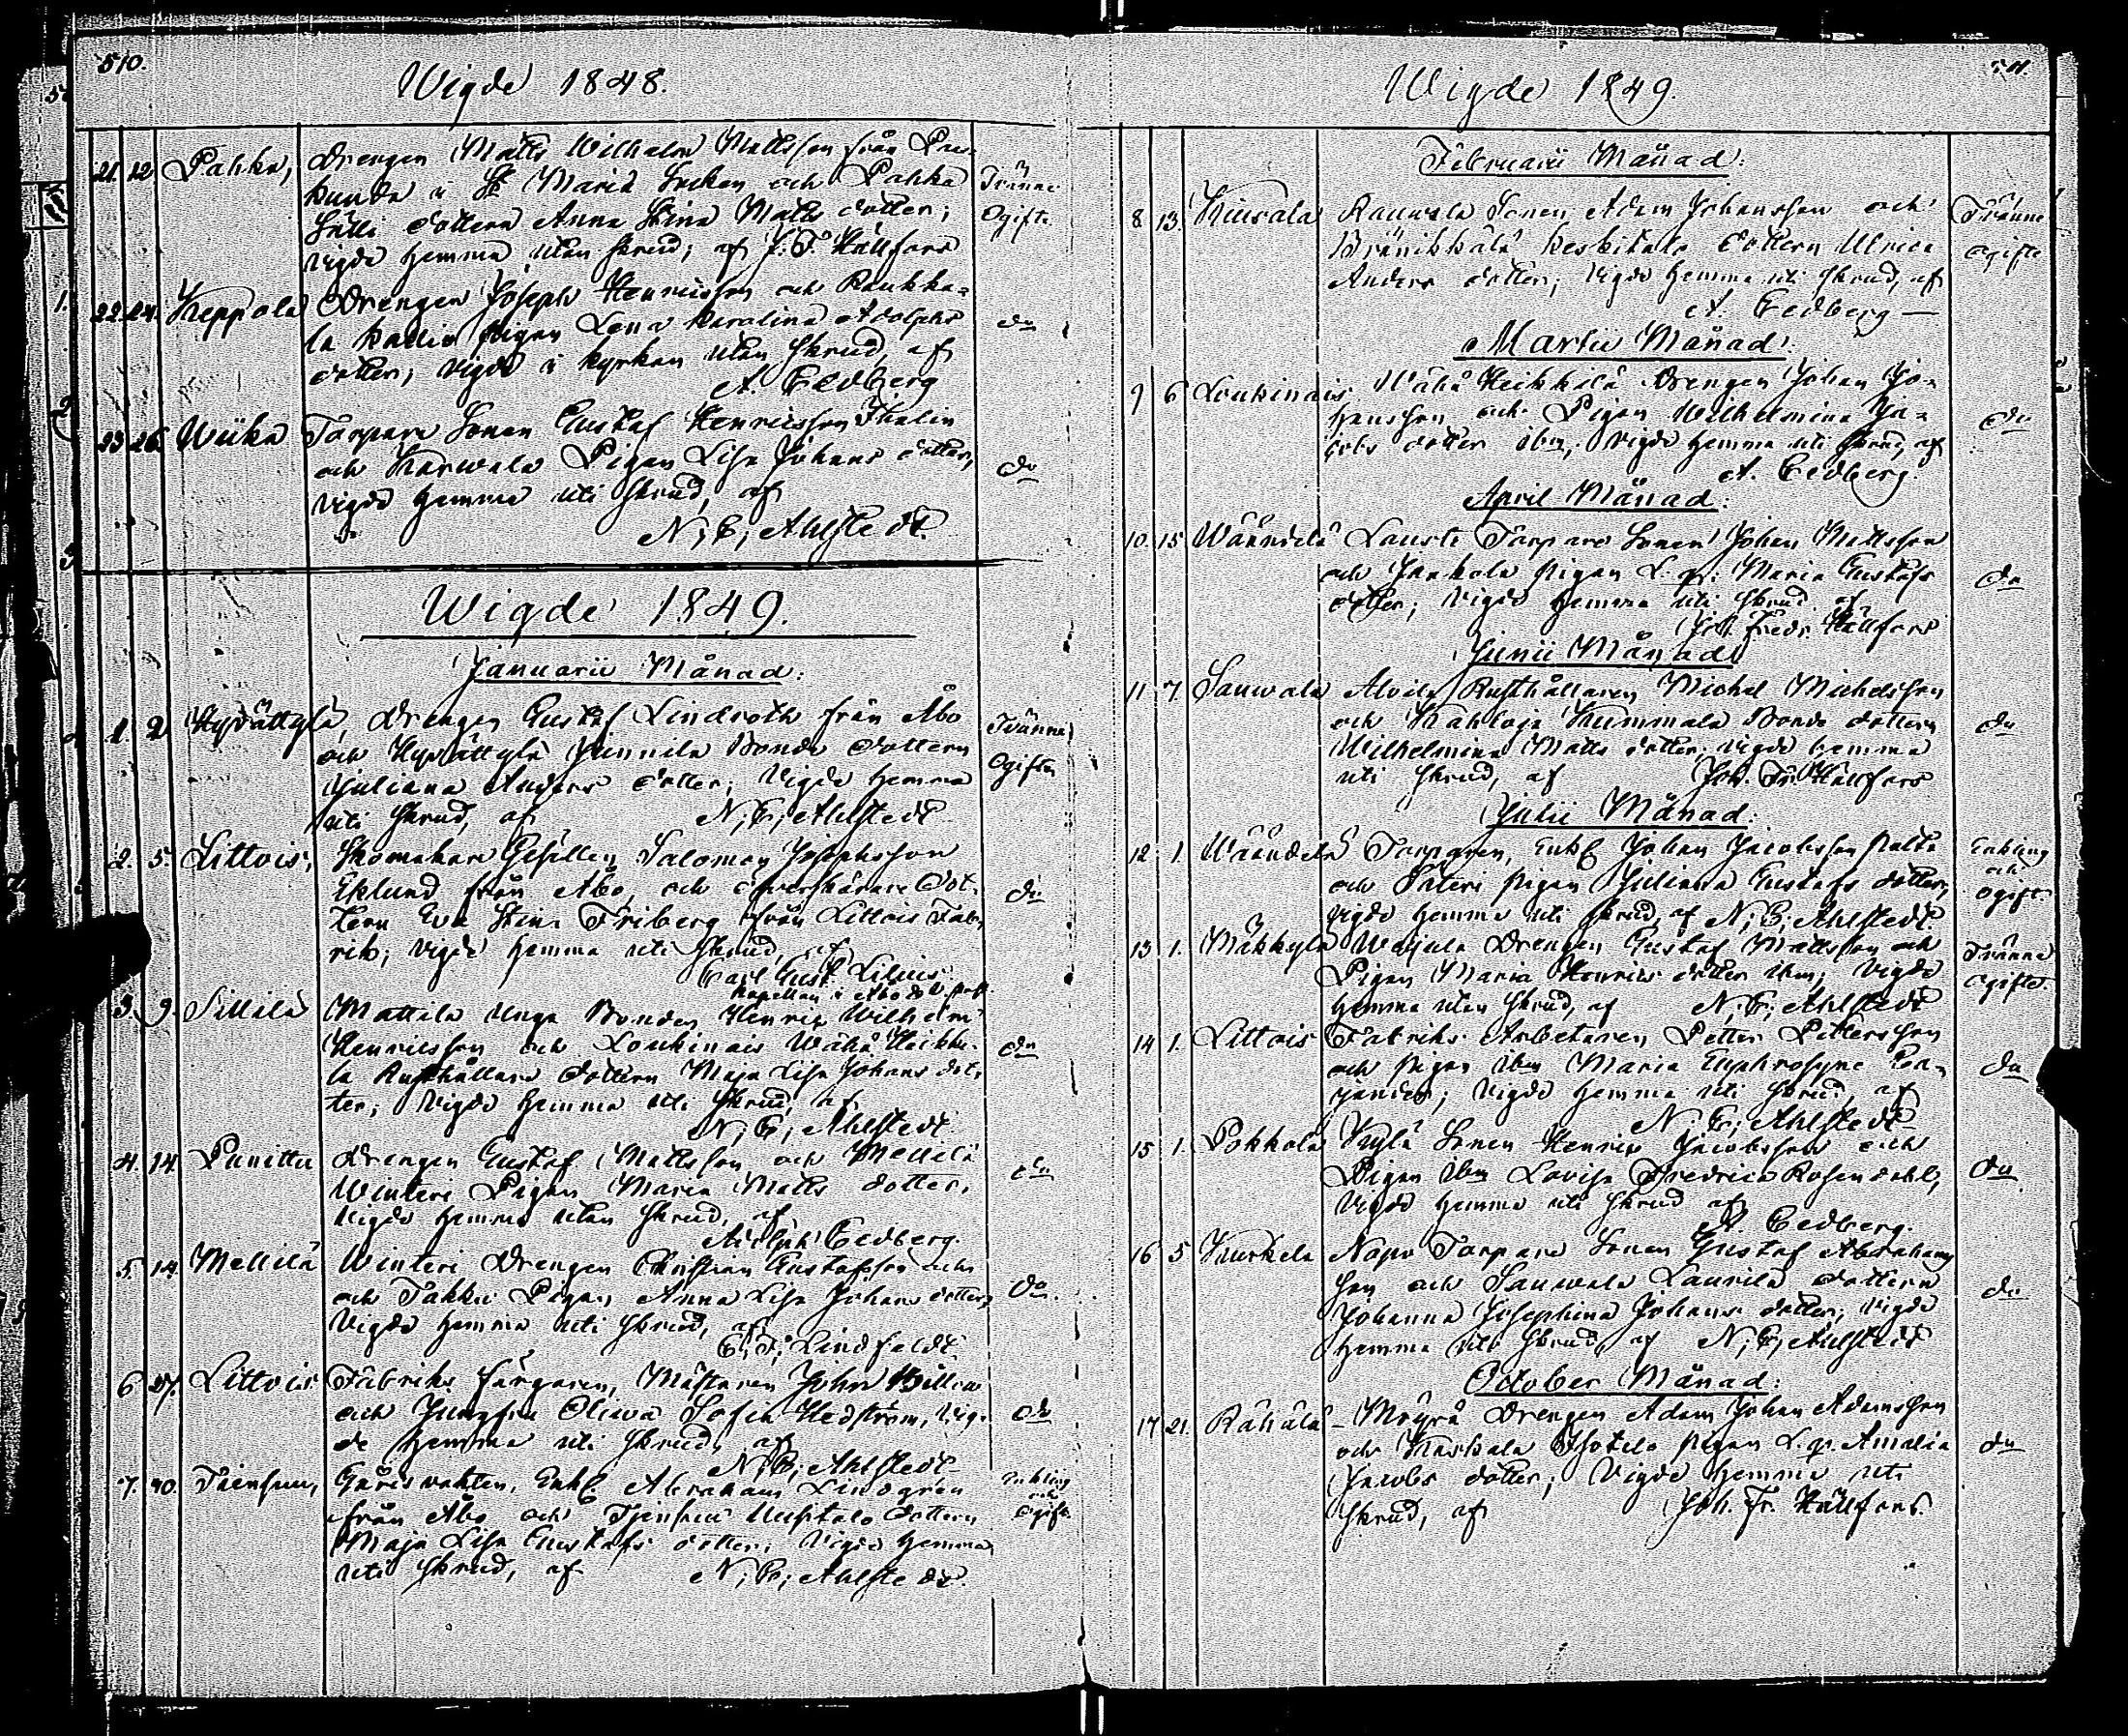 510.
Wigde 1848.
21. 12 Pahka, Drengen Matts Wilhelm Mattsson från
kunda i St Mariæ Socken och Pahka Tvänne
Sälli dottern Anna Stina Matts dotter; Ogifte
vigde hemma utan skrud; af J. F. Hällfors
22. 24. Keppola Drengen Joseph Henricsson och Raukka=
la Pigan Lena Karolina Adolphs do
dotter; vigde i kyrkan utan skrud, af
A. Cedberg
23 26. Wiika Torpare Sonen Gustaf Henricsson Thalin
och Karwala Pigan Lisa Johans dotter, do
vigde hemma uti skrud, af
N; E; Ahlstedt.
Wigde 1849.
Januarii Månad:
1. 2 Hyvättylä, Drengen Gustaf Lindroth från Åbo Tvänne
och Hyvättylä Junnila Bonde dottern Ogifte
Juliana Anders dotter; Vigde hemma
uti skrud, af N; E; Ahlstedt
2. 5. Littois, Skomakare Gesällen Salomon Josephsson
Eklund från Åbo, och öfverskärare dot- do
tern Eva Stina Friberg från Littois Fab-
rik; vigde hemma uti skrud, af
Carl Gust. Lilius
Kapellan i Åbo
3. 9. Sillilä Mattila unga Bonden Henric Wilhelm
Henricsson och Loukinais Wähä Heikki- do
lä Rusthållare dottern Maja Lisa Johans dot-
ter; Vigde hemma uti skrud, af
N; E; Ahlstedt
4. 14. Punittu Drengen Gustaf Mattsson och Mellilä do
Winteri Pigan Maria Matts dotter,
vigde hemma utan skrud, af
Adolph Cedberg.
5. 14. Mellilä Winteri Drengen Christian Gustafsson och
och Takku Pigan Anna Lisa Johans dotter, do.
Vigde hemma uti skrud, af
E; F; Lindfeldt
6 27. Littois Fabriks färgaren, Mästaren John
och Jungfru Olivia Sofia Hedström, vig- do
de hemma uti skrud, af
N; E; Ahlstedt
7. 30. Gårdsvakten, Enkl. Abraham Lindgren Enkling
från Åbo och Uusitalo dottern och ogift
Maja Lisa Gustafs dotter; Vigde hemma
uti skrud, af N; E; Ahlstedt.
511.
Wigde 1849.
Februarii Månad:
8 13. Kiusala Rauwola Sonen Adam Johansson och Tvänne
Keskitalo dottern Ulrica ogifte
Anders dotter; vigde hemma uti skrud, af
A. Cedberg —
Martii Månad:
9 6 Loukinais Wähä Heikkilä Drengen Johan Jo-
hansson och Pigan Wilhelmina Ja= do
cobs dotter ibm; vigde hemma uti skrud, af
A. Cedberg.
April Månad:
10. 15 Wäändelä Lausti Torpare Sonen Johan Mattsson
och Jaakola pigan L. qv. Maria Gustafs do
dotter; vigde hemma uti skrud af
Joh. Fredr. Hällfors
Junii Månad
11 7. Sauwala Alvila Rusthållaren Michel Michelsson
och Kahloja Kummala Bonde dottern do
Wilhelmina Matts dotter; vigde hemma
uti skrud, af Joh. Fr. Hällfors
Julii Månad:
12. 1. Wäändelä Torparen, Enkl. Johan Jacobsson Enkling
och Säteri pigan Juliana Gustafs dotter, och ogift.
vigde hemma uti skrud, af N; E; Ahlstedt.
13 1. Mäkkylä Drengen Gustaf Mattsson och Tvänne
Pigan Maria Henrics dotter ibm; vigde ogifte.
hemma utan skrud, af N; E; Ahlstedt
14 1. Littois Fabriks Arbetaren Petter Pettersson
och pigan ibm Maria Euphrosyne do
vigde hemma uti skrud, af
N; E; Ahlstedt
15 1. Pokkola Kylä Sonen Henric Jacobsson och
Pigan ibm Lovisa Fredrica Rosendahl, do
vigde hemma uti skrud af
A Cedberg.
16 5 Kurkela Napo Torpare Sonen Gustaf Abrahams
son och Sauwala Laurila dottern do
Johanna Josephina Johans dotter; vigde
hemma uti skrud, af N; E; Ahlstedt
October Månad:
17 21. Rähälä Möyrä Drengen Adam Johan Adamsson
och Karkala Isotalo pigan L. qv. Amalia do
Jacobs dotter; vigde hemma uti
skrud, af Joh. Fr. Hällfors.